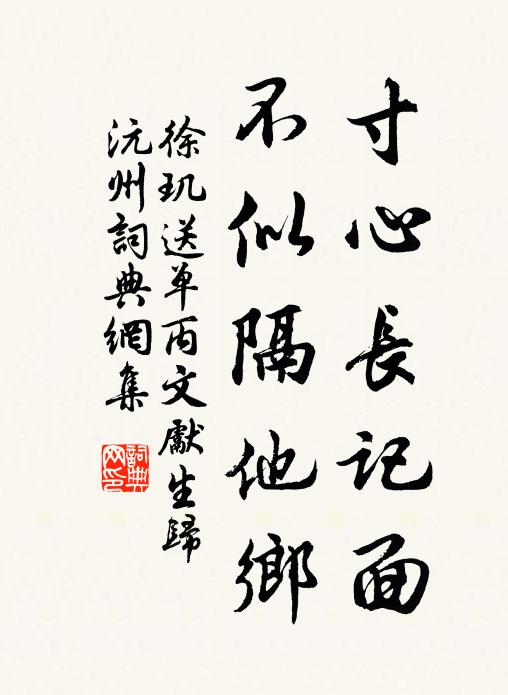 寸心長記面
不似隔他鄉
徐玑送单丙文獻生歸
沅州詞典網集
詞典网印